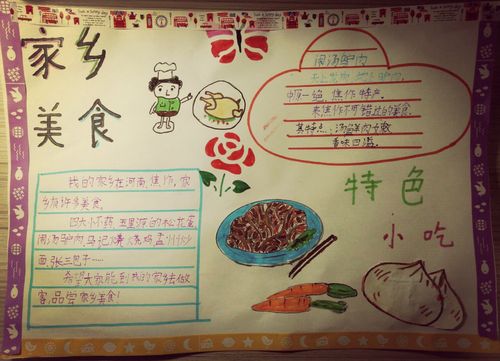 家乡
美食
闹汤驴肉
中原一馅，焦作特产。
来焦作不可错过的美食
其特点：汤馅美肉鲜嫩
香味四溢。
特色
小吃
我的家乡在河南，焦作，家
乡有许多美食
四大怀药，五里源的松花蛋
闹汤驴肉，马记烧鸡，孟州炒
面，张三包子……
希望大家能到我的家乡去做
客，品尝家乡美食！